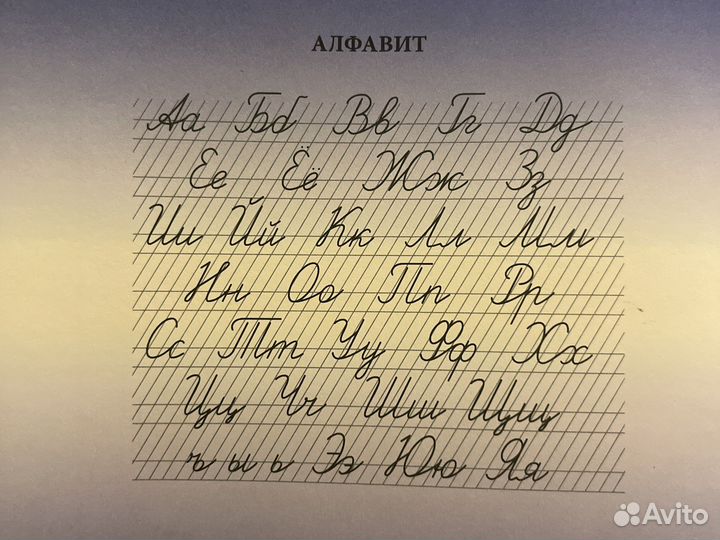 АЛФАВИТ
Аа Бб Вв Гг Дд
Ее Ёё Жж Зз
Ии Йй Кк Лл Мм
Нн Оо Пп Рр
Сс Тт Уу Фф Хх
Цц Чч Шш Щщ
ъ ы ь Ээ Юю Яя
Avito